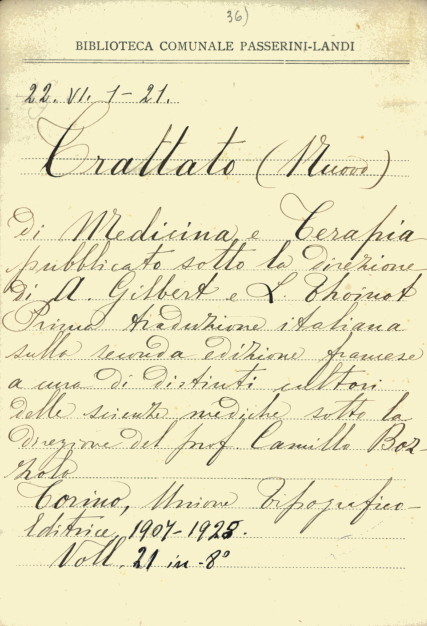 36)
BIBLIOTECA COMUNALE PASSERINI-LANDI
22. VI. 1-21.
Trattato (Nuovo)
di Medicina e Terapia
pubblicato sotto la direzione
di A. Gilbert e L. Thoinot
Prima traduzione italiana
sulla seconda edizione francese
a cura di distinti cultori
delle scienze mediche sotto la
direzione del prof Camillo Boz-
zolo
Torino, Unione Tipografico-
Editrice, 1907-1928.
Voll. 21 in-8°